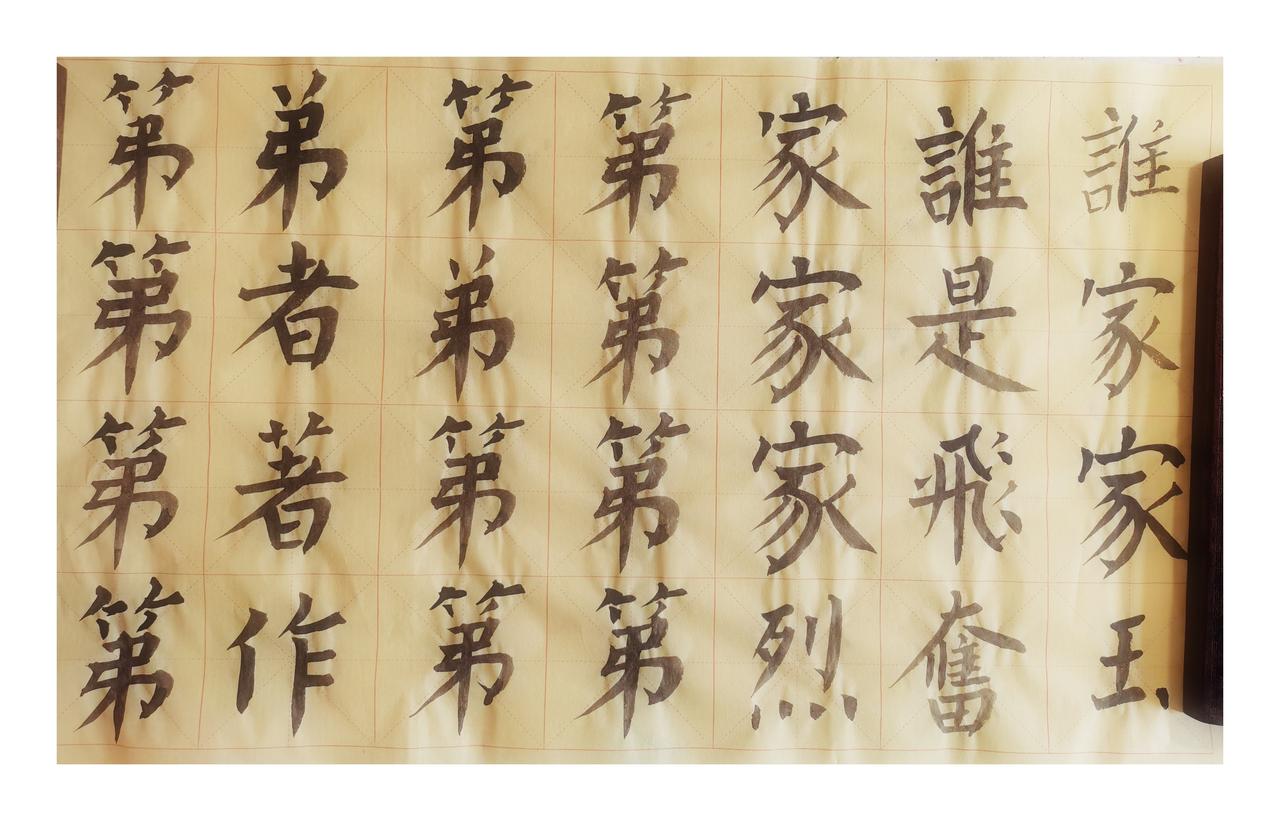 誰家家玉
誰是飛奮
家家家烈
第第第第
第弟第第
弟者著作
第第第第